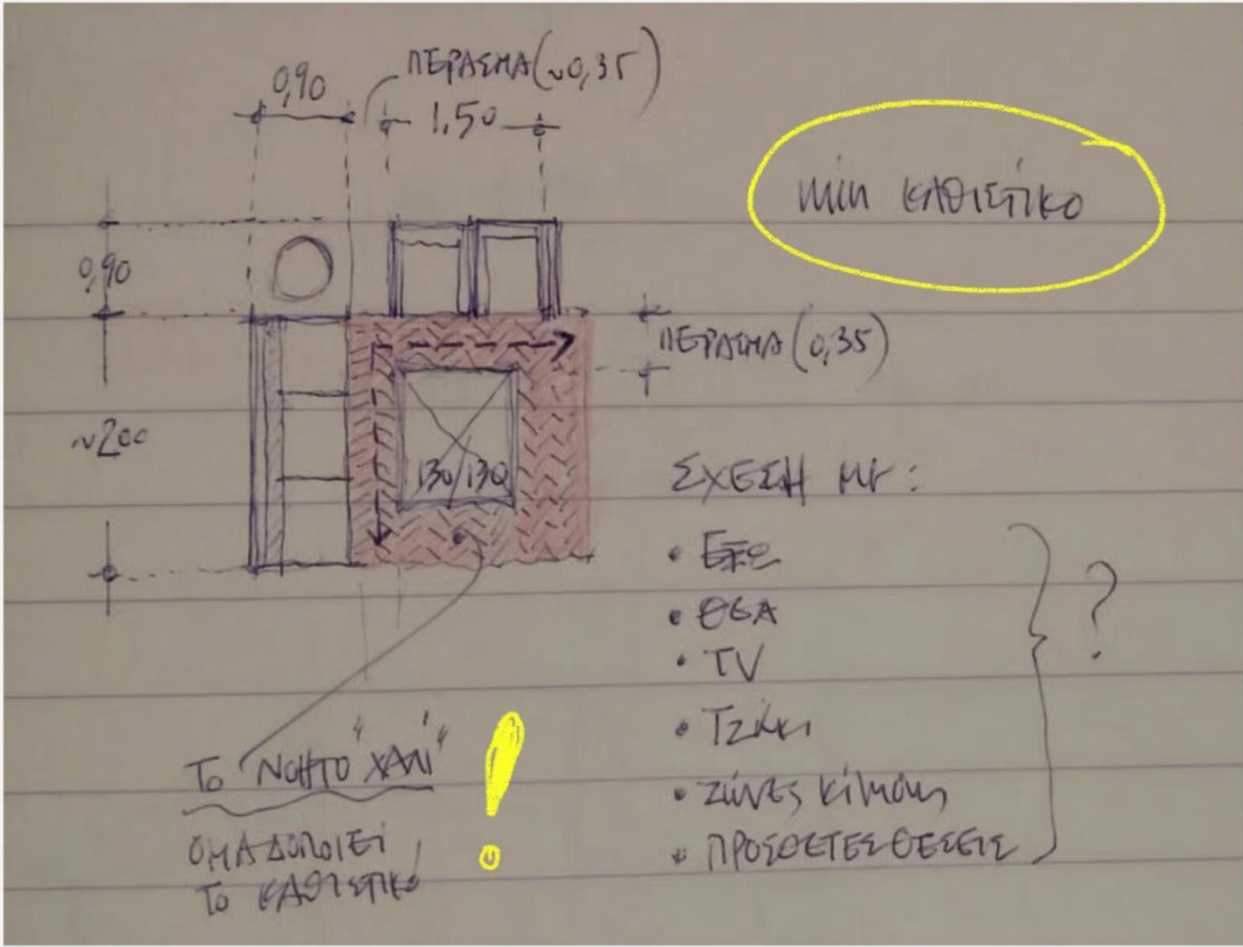 0,90
ΠΕΡΑΣΜΑ (~0,35)
1,50
min ΚΑΘΙΣΤΙΚΟ
0,90
ΠΕΡΑΣΜΑ (0,35)
~200
130/130
ΣΧΕΣΗ ΜΕ:
• Εξω
• ΘΕΑ
• TV
• Τζάκι
• Ζώνες κίνησης
• ΠΡΟΣΘΕΤΕΣ ΘΕΣΕΙΣ
?
Το "ΝΟΗΤΟ "ΧΑΛΙ"
!
ΟΜΑΔΟΠΟΙΕΙ
Το ΚΑΘΙΣΤΙΚΟ